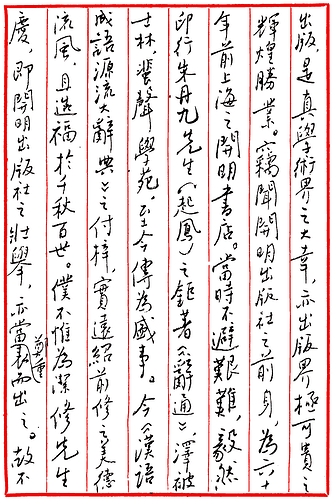 出版,是真學術界之大幸,亦出版界極可貴之
輝煌勝業。竊聞開明出版社之前身,為六十
年前上海之開明書店。當時不避艱難,毅然
印行朱丹九先生(起鳳)之鉅著《辭通》,澤被
士林,蜚聲學苑,至今傳為盛事。今《漢語
成語源流大辭典》之付梓,實遠紹前修之美德
流風,且造福於千秋百世。僕不惟為潔修先生
慶,即開明出版社之壯舉,亦當鄭重表而出之。故不